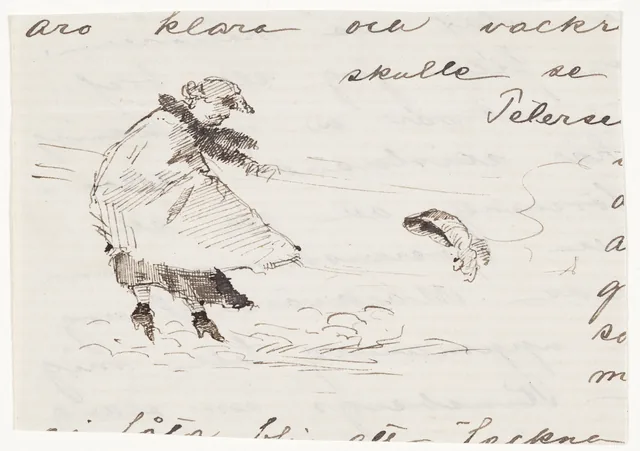 aro klara och vackr
skulle se
Peterse
a
g
so
m
låta bli att teckna